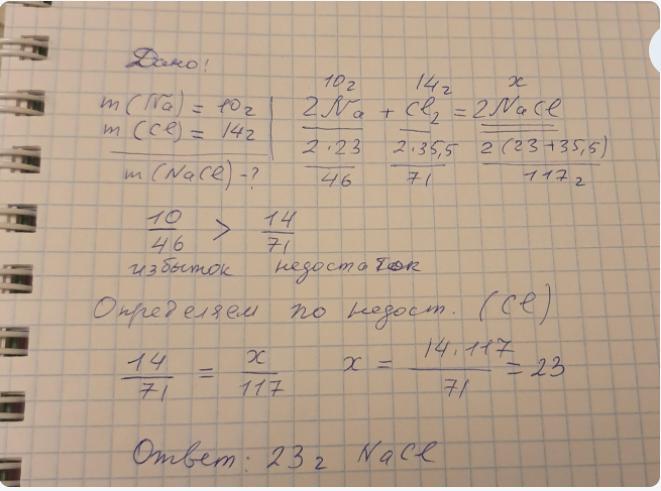 Дано:
10г 14г x
m(Na) = 10г 2Na + Cl₂ = 2NaCl
m(Cl) = 14г 2·23 2·35,5 2(23+35,5)
m(NaCl)-? 46 71 117г
10/46 > 14/71
избыток недостаток
Определяем по недост. (Cl)
14/71 = x/117 x = 14·117/71 = 23
Ответ: 23г NaCl